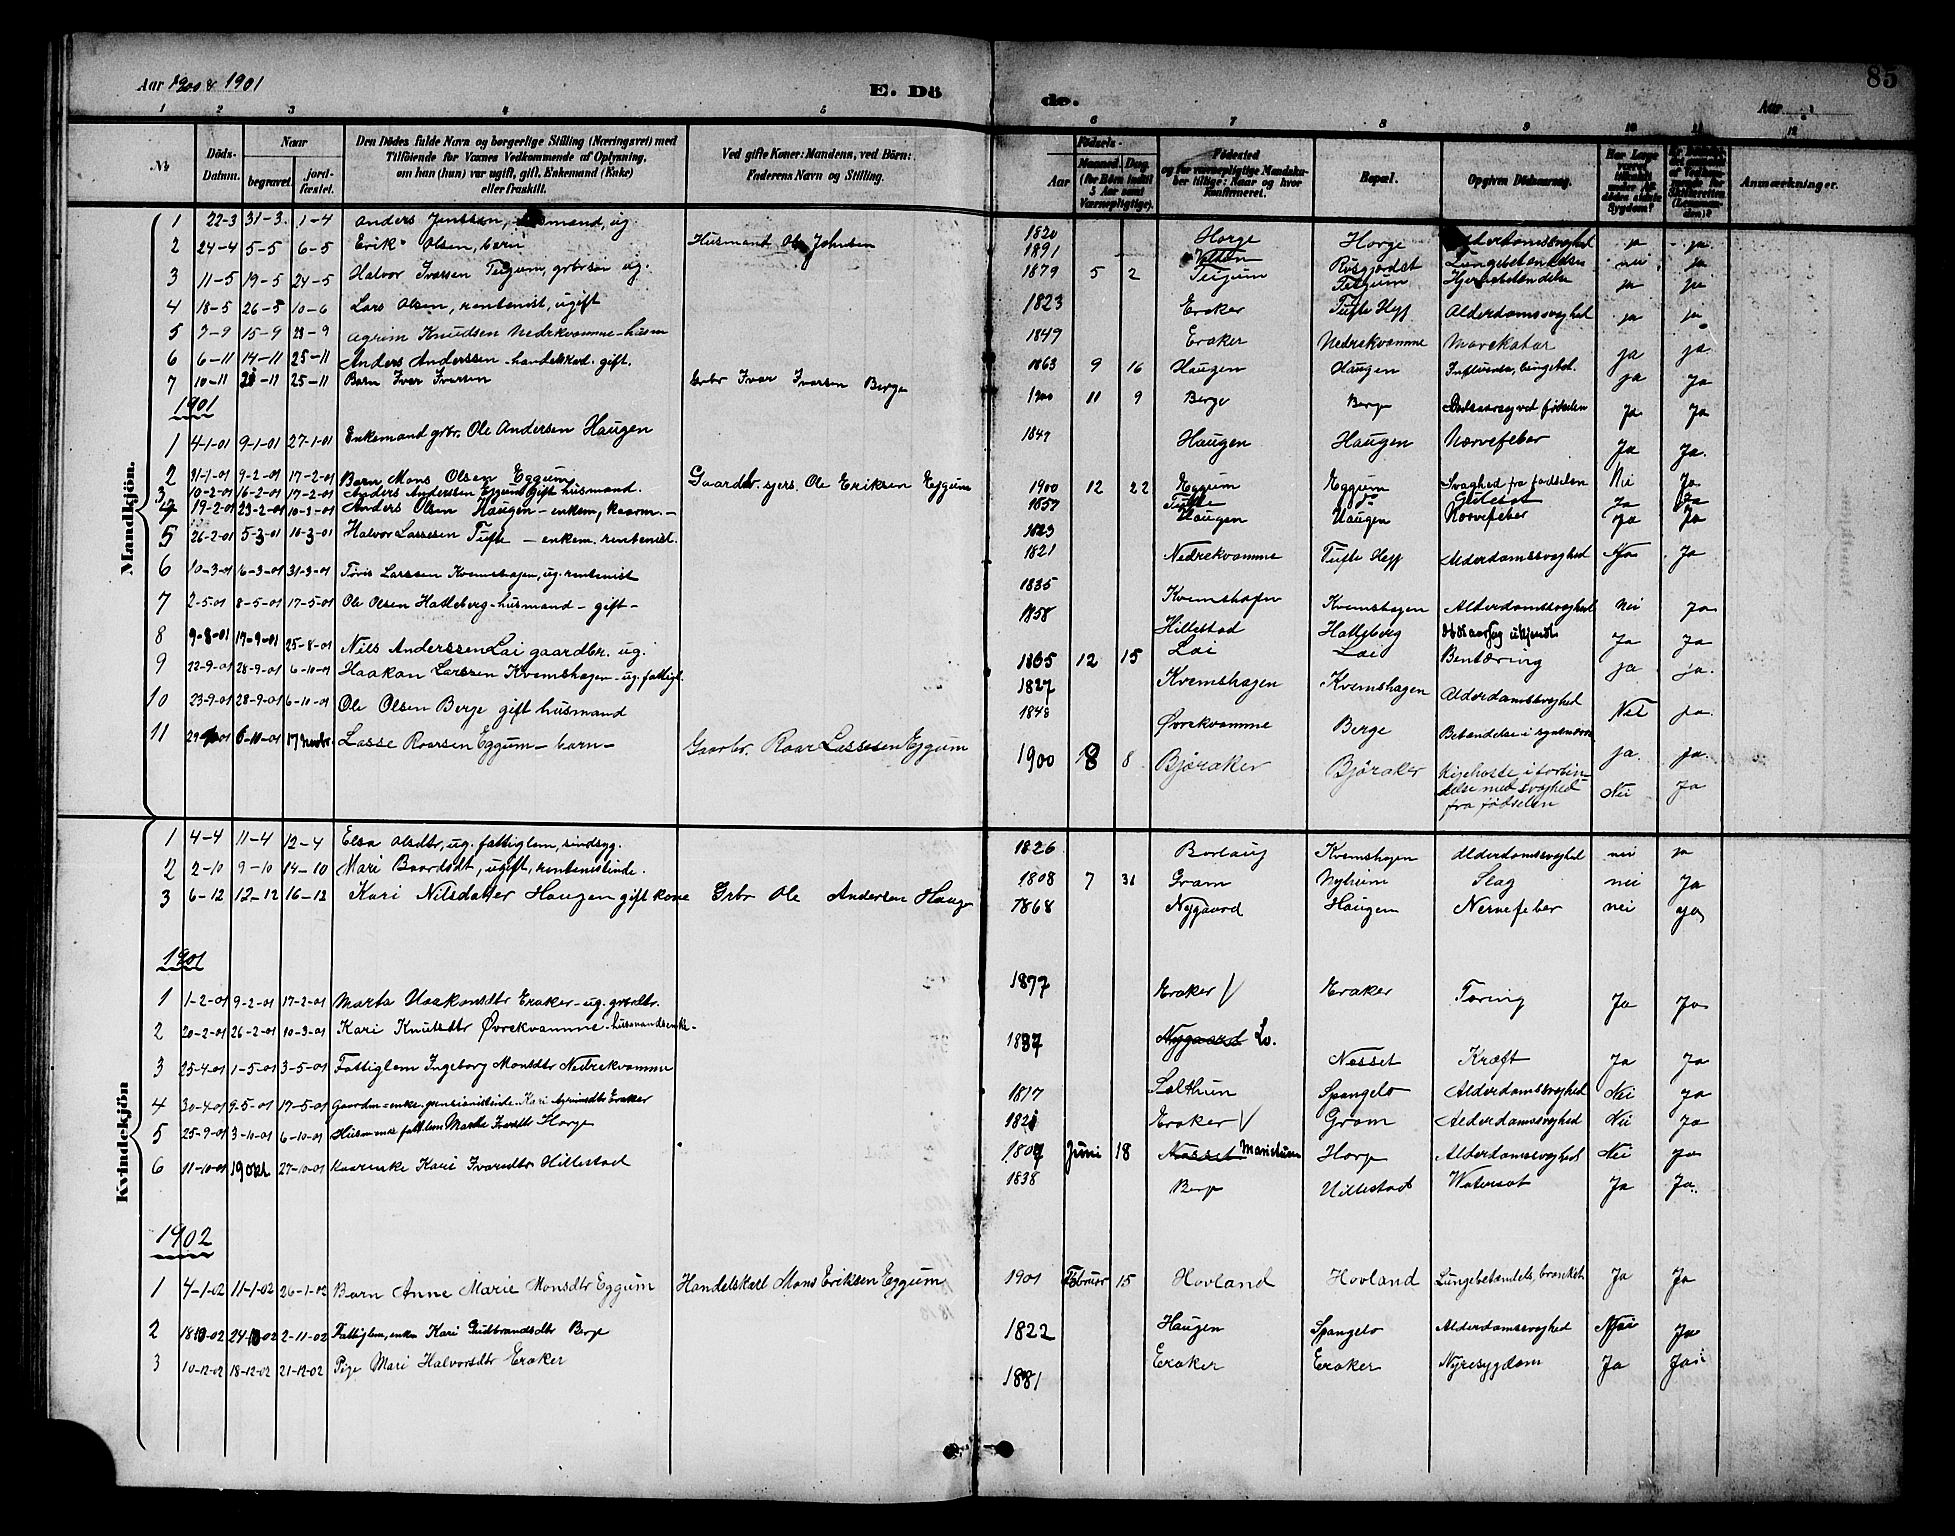 Aar 1900 & 1901
E. Dö
de.
Aar
85
1 2 3 4 5 6 7 8 9 10 11 12
№
Döds-Datum.
Naar
begravet.
jord-fæstet.
Den Dödes fulde Navn og borgerlige Stilling (Næringsvei) med
Tilföiende for Voxnes Vedkommende af Oplysning,
om han (hun) var ugift, gift, Enkemand (Enke)
eller fraskilt.
Ved gifte Koner: Mandens, ved Börn:
Faderens Navn og Stilling.
Födsels-
Aar
Maaned. Dag
(for Börn indtil
5 Aar samt
Værnepligtige).
Födested
og for værnepligtige Mandskaber tillige: Naar og hvor
konfirmeret.
Bopæl.
Opgiven Dödsaarsag.
Har Læge
været
tilkaldt
under Afdödes sidste
Sygdom?
Anmærkninger.
Mandkjön.
1 22-3 31-3. 1-4 Anders Jenssen, ug. 1820 Horge Horge Alderdomssvaghed ja ja
2 24-4 5-5 6-5 Erik Olsen, barn Husmand Ole Johnsen 1891 Lungebetændelse nei ja
3 11-5 19-5 24-5 Halvor Ivarsen Teigum, grbrsøn ug. 1879 5 2 Teigum Teigum Hjernebetændelse ja ja
4 18-5 26-5 10-6 Lars Olsen, rentenist, ugift 1823 Eraker Tufte Hegg Alderdomssvaghed ja ja
5 7-9 15-9 23-9 Agrim Knudsen Nedrekvamme-husm 1849 Eraker Nedrekvamme Mavekatar ja ja.
6 6-11 14-11 25-11 Anders Anderssen - handelskad. gift. 1863 9 16 Haugen Haugen Influensa, lungebet. ja ja
7 10-11 25-11 Barn Iver Ivarsen Grbr Ivar Ivarsen Berge 1900 11 9 Berge Berge Ja Ja
1901
1 4-1-01 9-1-01 27-1-01 Enkemand grbr. Ole Andersen Haugen 1849 Haugen Haugen Nervefeber Ja Ja.
2 31-1-01 9-2-01 17-2-01 Barn Mons Olsen Eggum Gaardbr. sjers. Ole Eriksen Eggum 1900 12 22 Eggum Eggum Svaghed fra fødselen Nei Ja
3 10-2-01 16-2-01 17-2-01 Anders Anderssen Eggum gift husmand. 1857 Tufte do Ja Ja
4 19-2-01 23-2-01 10-3-01 Anders Olsen Haugen - enkem, kaarm. - 1823 Haugen Haugen Nervefeber Ja Ja
5 26-2-01 5-3-01 10-3-01 Halvor Lassesen Tufte - enkem. rentenist. 1821 Nedrekvamme Tufte Hegg Alderdomssvaghed Ja
6 10-3-01 16-3-01 31-3-01 Tøris Larssen Kvemshagen, ug. rentenist 1835 Kvemshagen Kvemshagen Alderdomssvaghed Nei Ja
7 2-5-01 8-5-01 17-5-01 Ole Olsen Hatleberg - husmand - gift - 1858 Hillestad Hatleberg Dødsaarsag ukjendt Ja Ja
8 9-8-01 17-9-01 25-8-01 Nils Anderssen Lai gaardbr. ug. 1865 12 15 Lai Lai Bentæring ja ja.
9 22-9-01 28-9-01 6-10-01 Haakon Larssen Kvemshagen - ug. fattigl. 1827 Kvemshagen Kvemshagen Alderdomssvaghed Nei ja.
10 23-9-01 28-9-01 6-10-01 Ole Olsen Berge gift husmand 1848 Øvrekvamme Berge ja. ja.
11 6-10-01 Lasse Roarsen Eggum - barn - Gaarbr. Roar Lassesen Eggum 1900 8 8 Bjøraker Bjøraker Kighoste i forbin-
delse med svaghed
fra fødselen Nei Ja
Kvindekjön
1 4-4 11-4 12-4 Elsa Olsdtr, ug. fattiglem, sindsyg. 1826 Borlaug Kvemshagen Alderdomssvaghed nei ja
2 2-10 9-10 14-10 Mari Baardsdt, ugift, rentenistinde. 1808 7 31 Gram Nyheim Slag nei Ja
3 6-12 12-12 16-12 Kari Nilsdatter Haugen gift kone Grbr Ole Andersen Hauge 1868 Nygaard Haugen Nervefeber nei ja
1901
1 1-2-01 9-2-01 17-2-01 Marta Haakonsdtr Eraker - ug. grbrdtr. 1877 Eraker √ Eraker Tæring Ja Ja
2 20-2-01 26-2-01 10-3-01 Kari Knutsdtr Øvrekvamme - husmandsenke - 1837 Nygaard Lo. Nesset Kræft Ja Ja
3 25-4-01 1-5-01 3-5-01 Fattiglem Ingeborg Monsdtr Nedrekvamme 1817 Sælthun Spangelo Alderdomssvaghed Nei Ja
4 30-4-01 9-5-01 17-5-01 Gaardm-enke. pensionistinde. Kari Agrimdtr Eraker 1821 Eraker √ Gram Alderdomssvaghed Nei Ja
5 25-9-01 3-10-01 6-10-01 Horge Juni 18 Nesset Maristuen Horge Alderdomssvaghed Nei ja
6 11-10-01 19 okt 27-10-01 Kaarenke Kari Ivarsdtr Hillestad 1838 Berge Hillestad Watersot Ja Ja.
1902
1 4-1-02 11-1-02 26-1-02 Barn Anne Marie Monsdtr Eggum Handelskarl Mons Eriksen Eggum 1901 Februar 15 Hovland Hovland Lungebetændels, bronkit Ja Ja
2 2-11-02 Fattiglem, enke Kari Gudbrandsdtr Berge 1822 Haugen Spangelo Alderdomssvaghed Nei Ja
3 10-12-02 18-12-02 21-12-02 Pige Mari Halvorsdtr Eraker 1881 Eraker Eraker Nyresygdom Ja Ja